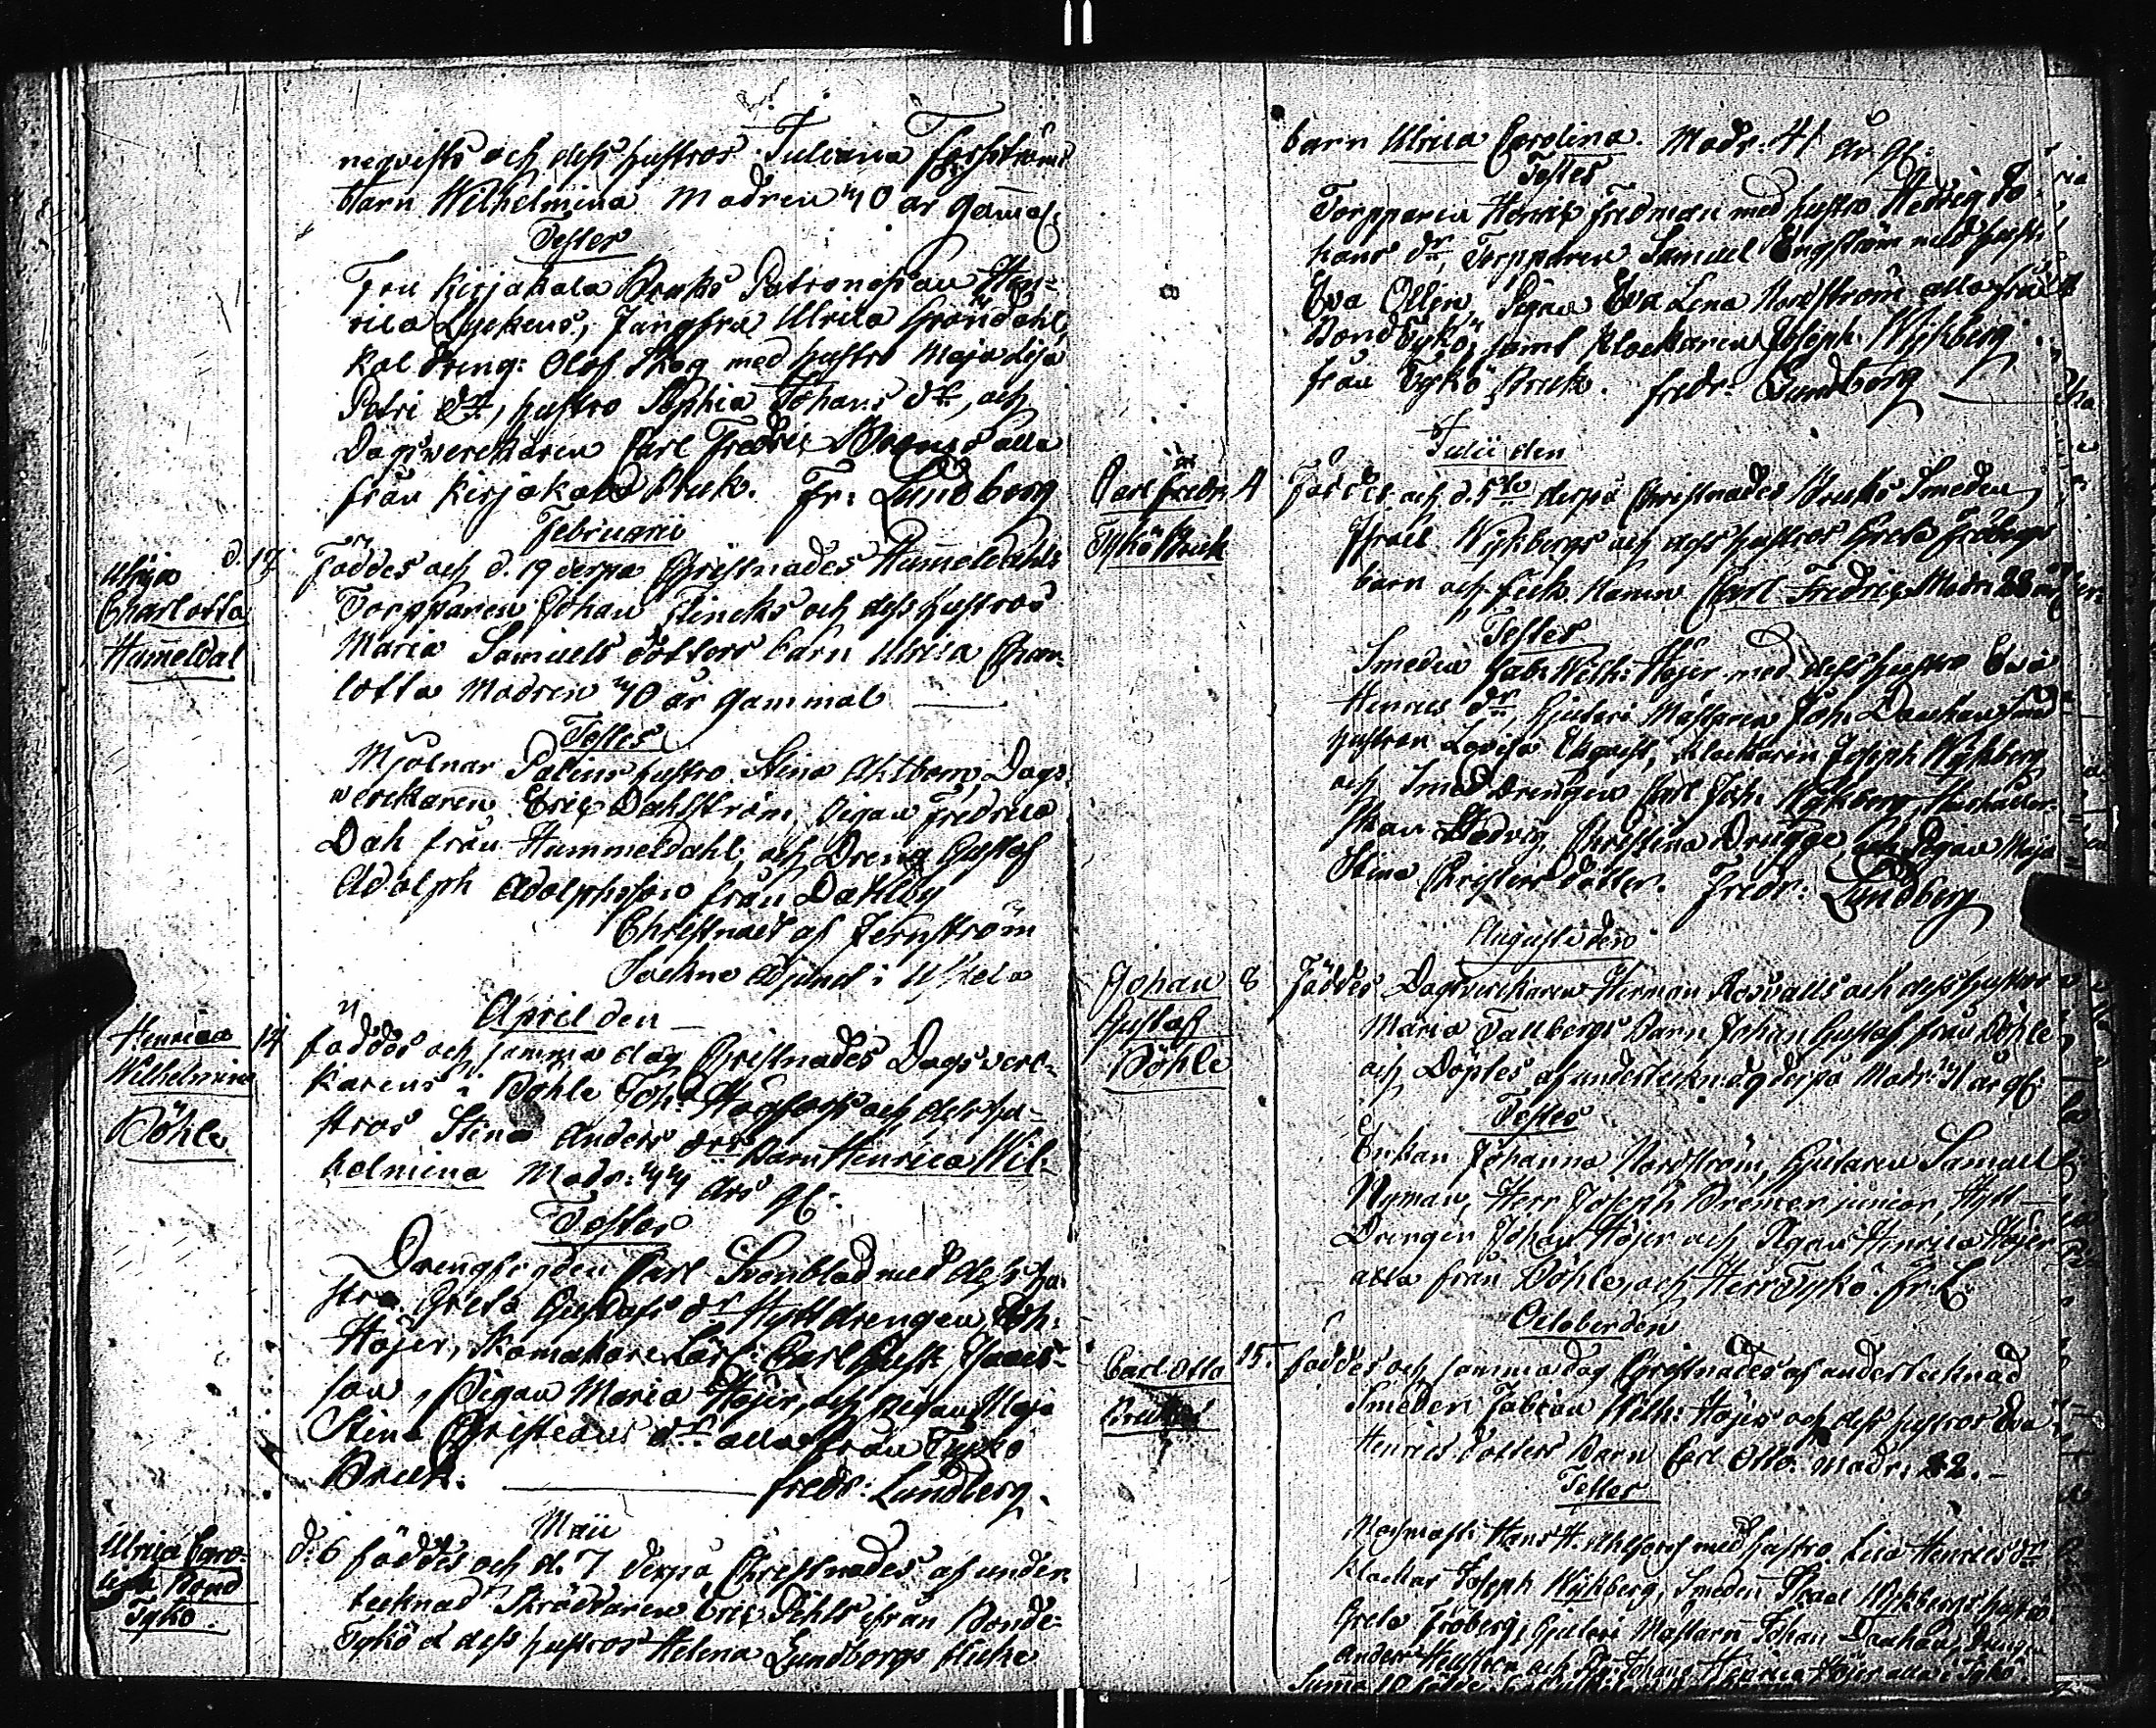 neqvists och dess hustros Juliana Forsströms
barn Wilhelmina Modren 40 år gamal:
Testes
Fru Kirjakala Bruks Patronessan Hen-
rica Lyckens, Jungfru Ulrica Gröndahl,
Koldreng: Olof Skog med hustro Maja Lisa
Petri dtr, hustro Sophia Johans dtr, och
Dagsverckaren Carl Fredric alla
från Kirjakala Bruk. Fr: Lundberg
Februarii
Ulrica
Charlotta
Hummeldal
d. 17. Föddes och d. 19 derpå Christnades Hummeldahls
Torpparen Johan Flincks och dess hustros
Maria Samuels dotters barn Ulrica Char-
lotta Modren 40 år gammal
Testes
Mjölnar Palins hustro Stina Ahlbom, Dags-
werckaren Eric Dahlström, Pigan Fredrica
Dah från Hummeldahl, och Dreng Gustaf
Adolph Adolphsson från Dahlby
Christnadt af Jernström
Sockne Adjunct i Uskela
April den
Henrica
Wilhelmina
Böhle
14 föddes och samma dag Christnades Dagsverc-
karens i Böhle Joh: Högfors och dess hu-
stros Stina Anders dtrs Barn Henrica Wil-
helmina Modr: 44 års gl:
Testes
Drengfogden Carl Svonblad med dess hu-
stro Greta Gustafs dr Hyttdrengen Joh:
Höjer, Skomakare Lärl: Carl Gust: Isacs-
son, Pigan Maria Höjer, och pigan Maja
Stina Christians dr alla från Tykö
Bruk. Fredr: Lundberg.
Maii
Ulrica Caro-
lina Bond
Tykö.
d: 6 föddes och d. 7 derpå Christnades af under-
tecknad Skräddaren Eric Pihls från Bonde-
Tykö & dess hustros Helena Lundbergs flicke
barn Ulrica Carolina. Modr: 41 år gl:
Testes
Torpparen Henric Fredman med hustro Hedvig Jo-
hans dr, Torpparen Samuel Engström med hustr:
Eva Ollin, Pigan Eva Lena Nordström alla från
Bond Tykö, samt Klockaren Joseph Wykberg
från Tykö Bruk. Fredr: Lundberg
Julii den
Carl Fredr.
Tykö Bruk
4 Föddes och d. 5te derpå Christnades Bruks Smeden
Israel Wykbergs och dess hustros Greta Fröbergs
barn och fick Namn Carl Fredric Modr: 22 år
Testes
Smeden Fab: Wilh: Höjer med dess hustro Eva
Henrics dr, Gjuteri Mästaren Joh: Daahau
hustron Lovisa Ekqvist, Klockaren Joseph Wykberg
och Smeddrengen Carl Joh: Wykberg, Hushåller-
skan Hedvig Christina Drugge, och Pigan Maja
Stina Christers dotter. Fredr: Lundberg
Augusti den
Johan
Gustaf
Böhle
8 Föddes Dagsverckaren Herman Rosvalls och dess hustros
Maria Tallbergs Barn Johan Gustaf från Böhle
och Döptes af undertecknad d. 9 derpå Modr: 31 år gl:
Testes
Enkan Johanna Nordström, Gjutaren Samuel
Nyman, Herr Joseph Bremer junior, Hytt-
Drengen Johan Höjer och Pigan Henrica Höjer
alla från Böhle och Herr Tykö. Fr: L:
October den
Carl Otto
15. föddes och samma dag Christnades af undertecknad
Smeden Fabian Wilh: Höjers och dess hustros Eva
Henrics dotters Barn Carl Otto. Modr: 22.
Testes
Masmäst: Hans H. Ahlfors med hustro Lisa Henrics dr
Klockar Joseph Wykberg, Smeden Israel Wykbergs hustro
Greta Fröberg, Gjuteri Mästarn Johan Daahau, Dreng
Anders och Henrica Höjer alla i Tykö
Summa 10